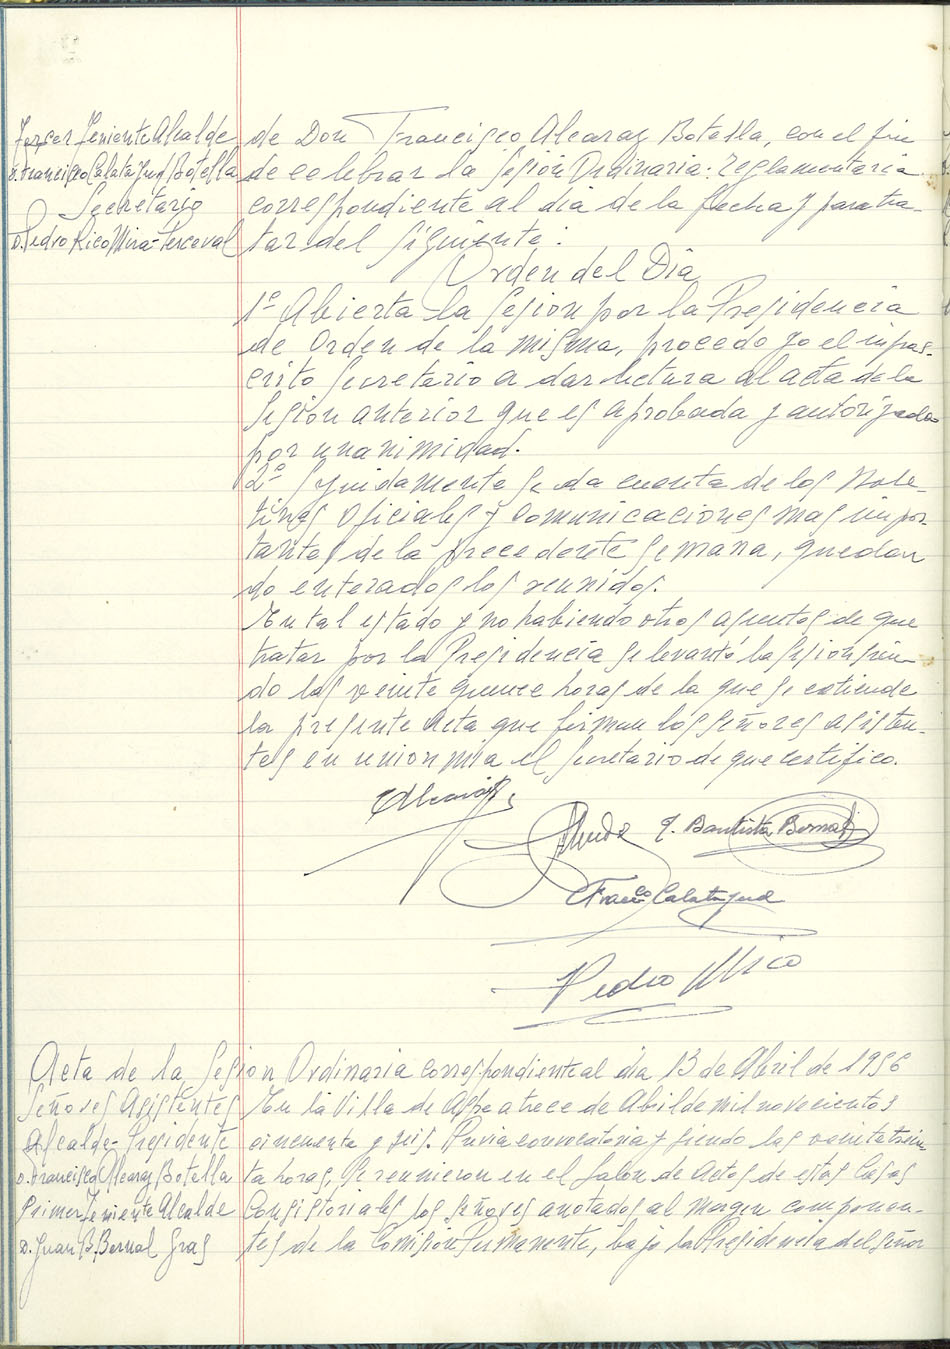 Tercer Teniente Alcalde
D. Francisco Calatayud Botella
Secretario
D. Pedro Rico Mira-Perceval
de Don Francisco Alcaraz Botella, con el fin
de celebrar la Sesión Ordinaria. reglamentaria
correspondiente al dia de la fecha y para tra-
tar del siguiente:
Orden del Dia
1º Abierta la Sesion por la Presidencia
de Orden de la misma, procedo yo el infras-
crito Secretario a dar lectura al acta de la
Sesion anterior que es aprobada y autorizada
por unanimidad.
2º Seguidamente se da cuenta de los Bole-
tines Oficiales y comunicaciones mas impor-
tantes de la precedente semana, quedan
do enterados los reunidos.
En tal estado y no habiendo otros asuntos de que
tratar por la Presidencia se levantó la sesion sien-
do las veinte quince horas de la que se extiende
la presente Acta que firman los señores asisten-
tes en union mia el Secretario de que certifico.
Alcaraz
J. Bautista Bernal
Franco Calatayud
Pedro Rico
Acta de la Sesion Ordinaria correspondiente al dia 13 de Abril de 1956
Señores Asistentes
Alcalde-Presidente
D. Francisco Alcaraz Botella
Primer Teniente Alcalde
D. Juan B. Bernal Gras
En la Villa de Aspe a trece de Abril de mil novecientos
cincuenta y seis. Previa convocatoria y siendo las veinte trein
ta horas, se reunieron en el Salon de Actos de estas Casas
Consistoriales los señores anotados al margen componen-
tes de la Comision Permanente, bajo la Presidencia del señor